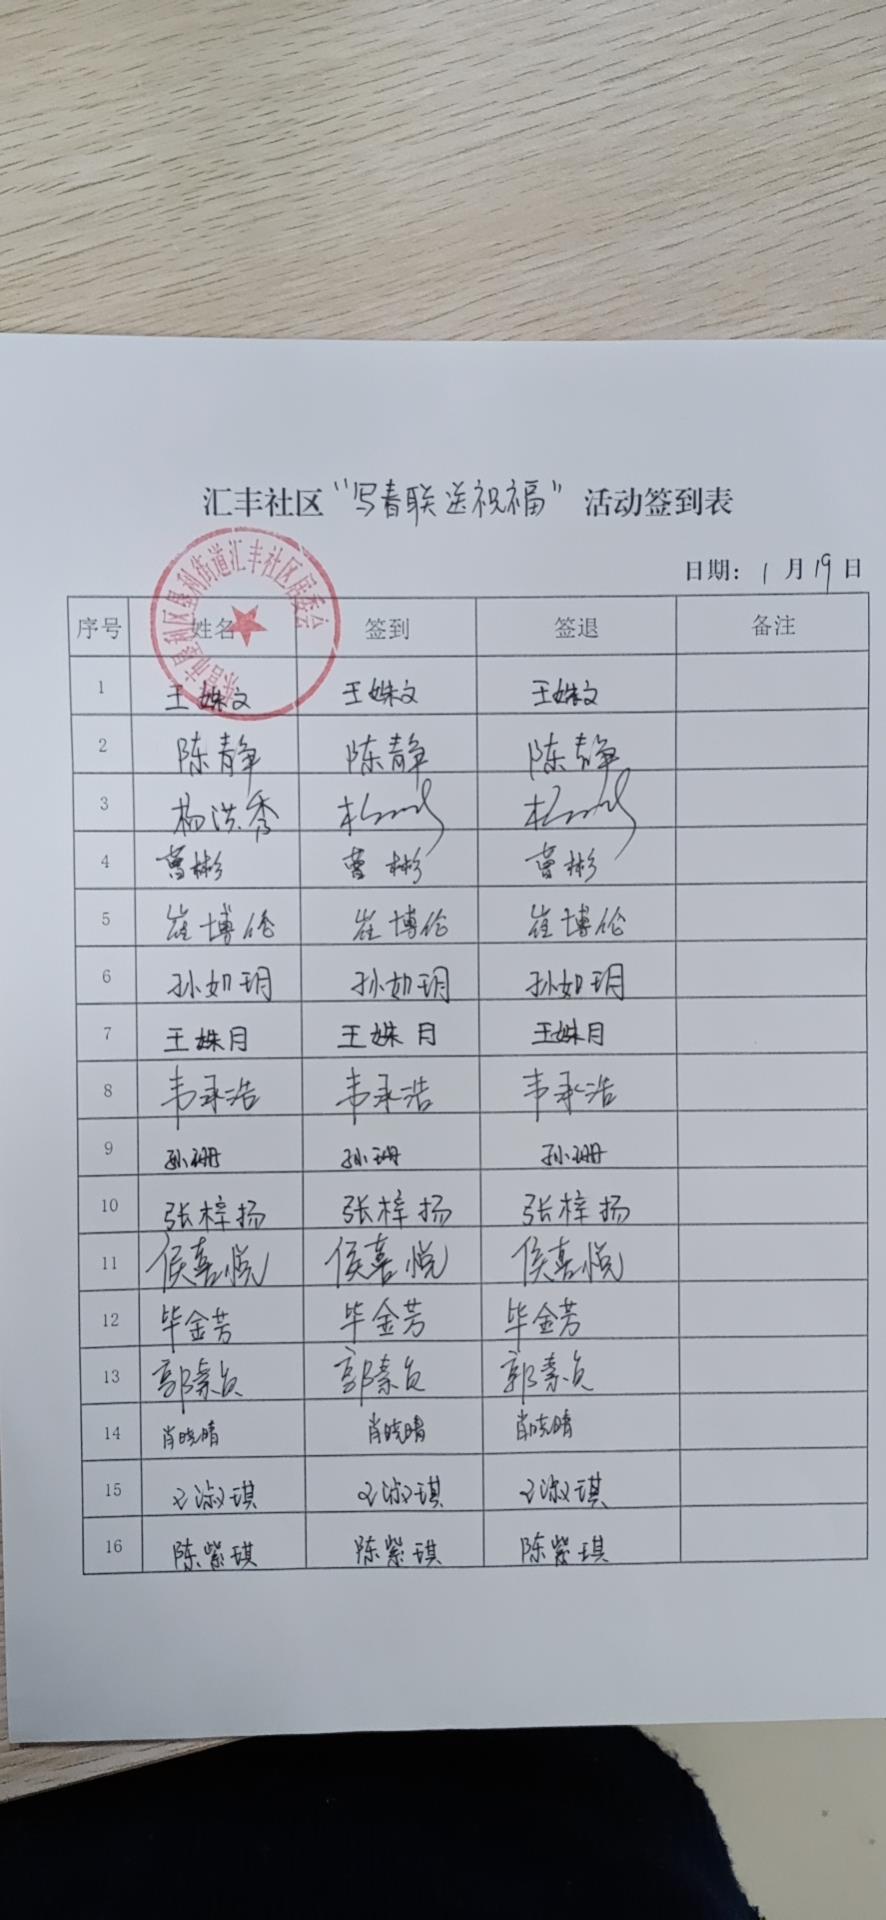 汇丰社区“写春联送祝福”活动签到表
日期：1月19日
东营市垦利区垦利街道汇丰社区居委会
序号 姓名 签到 签退 备注
1 王姝文 王姝文 王姝文
2 陈静 陈静 陈静
3 杨洪秀
4 曹彬 曹彬 曹彬
5 崔博伦 崔博伦 崔博伦
6 孙如玥 孙如玥 孙如玥
7 王姝月 王姝月 王姝月
8 韦承浩 韦承浩 韦承浩
9 孙珊 孙珊 孙珊
10 张梓扬 张梓扬 张梓扬
11 侯喜悦 侯喜悦 侯喜悦
12 毕金芳 毕金芳 毕金芳
13 郭素贞 郭素贞 郭素贞
14 肖晓晴 肖晓晴 肖晓晴
15 王淑琪 王淑琪 王淑琪
16 陈紫琪 陈紫琪 陈紫琪